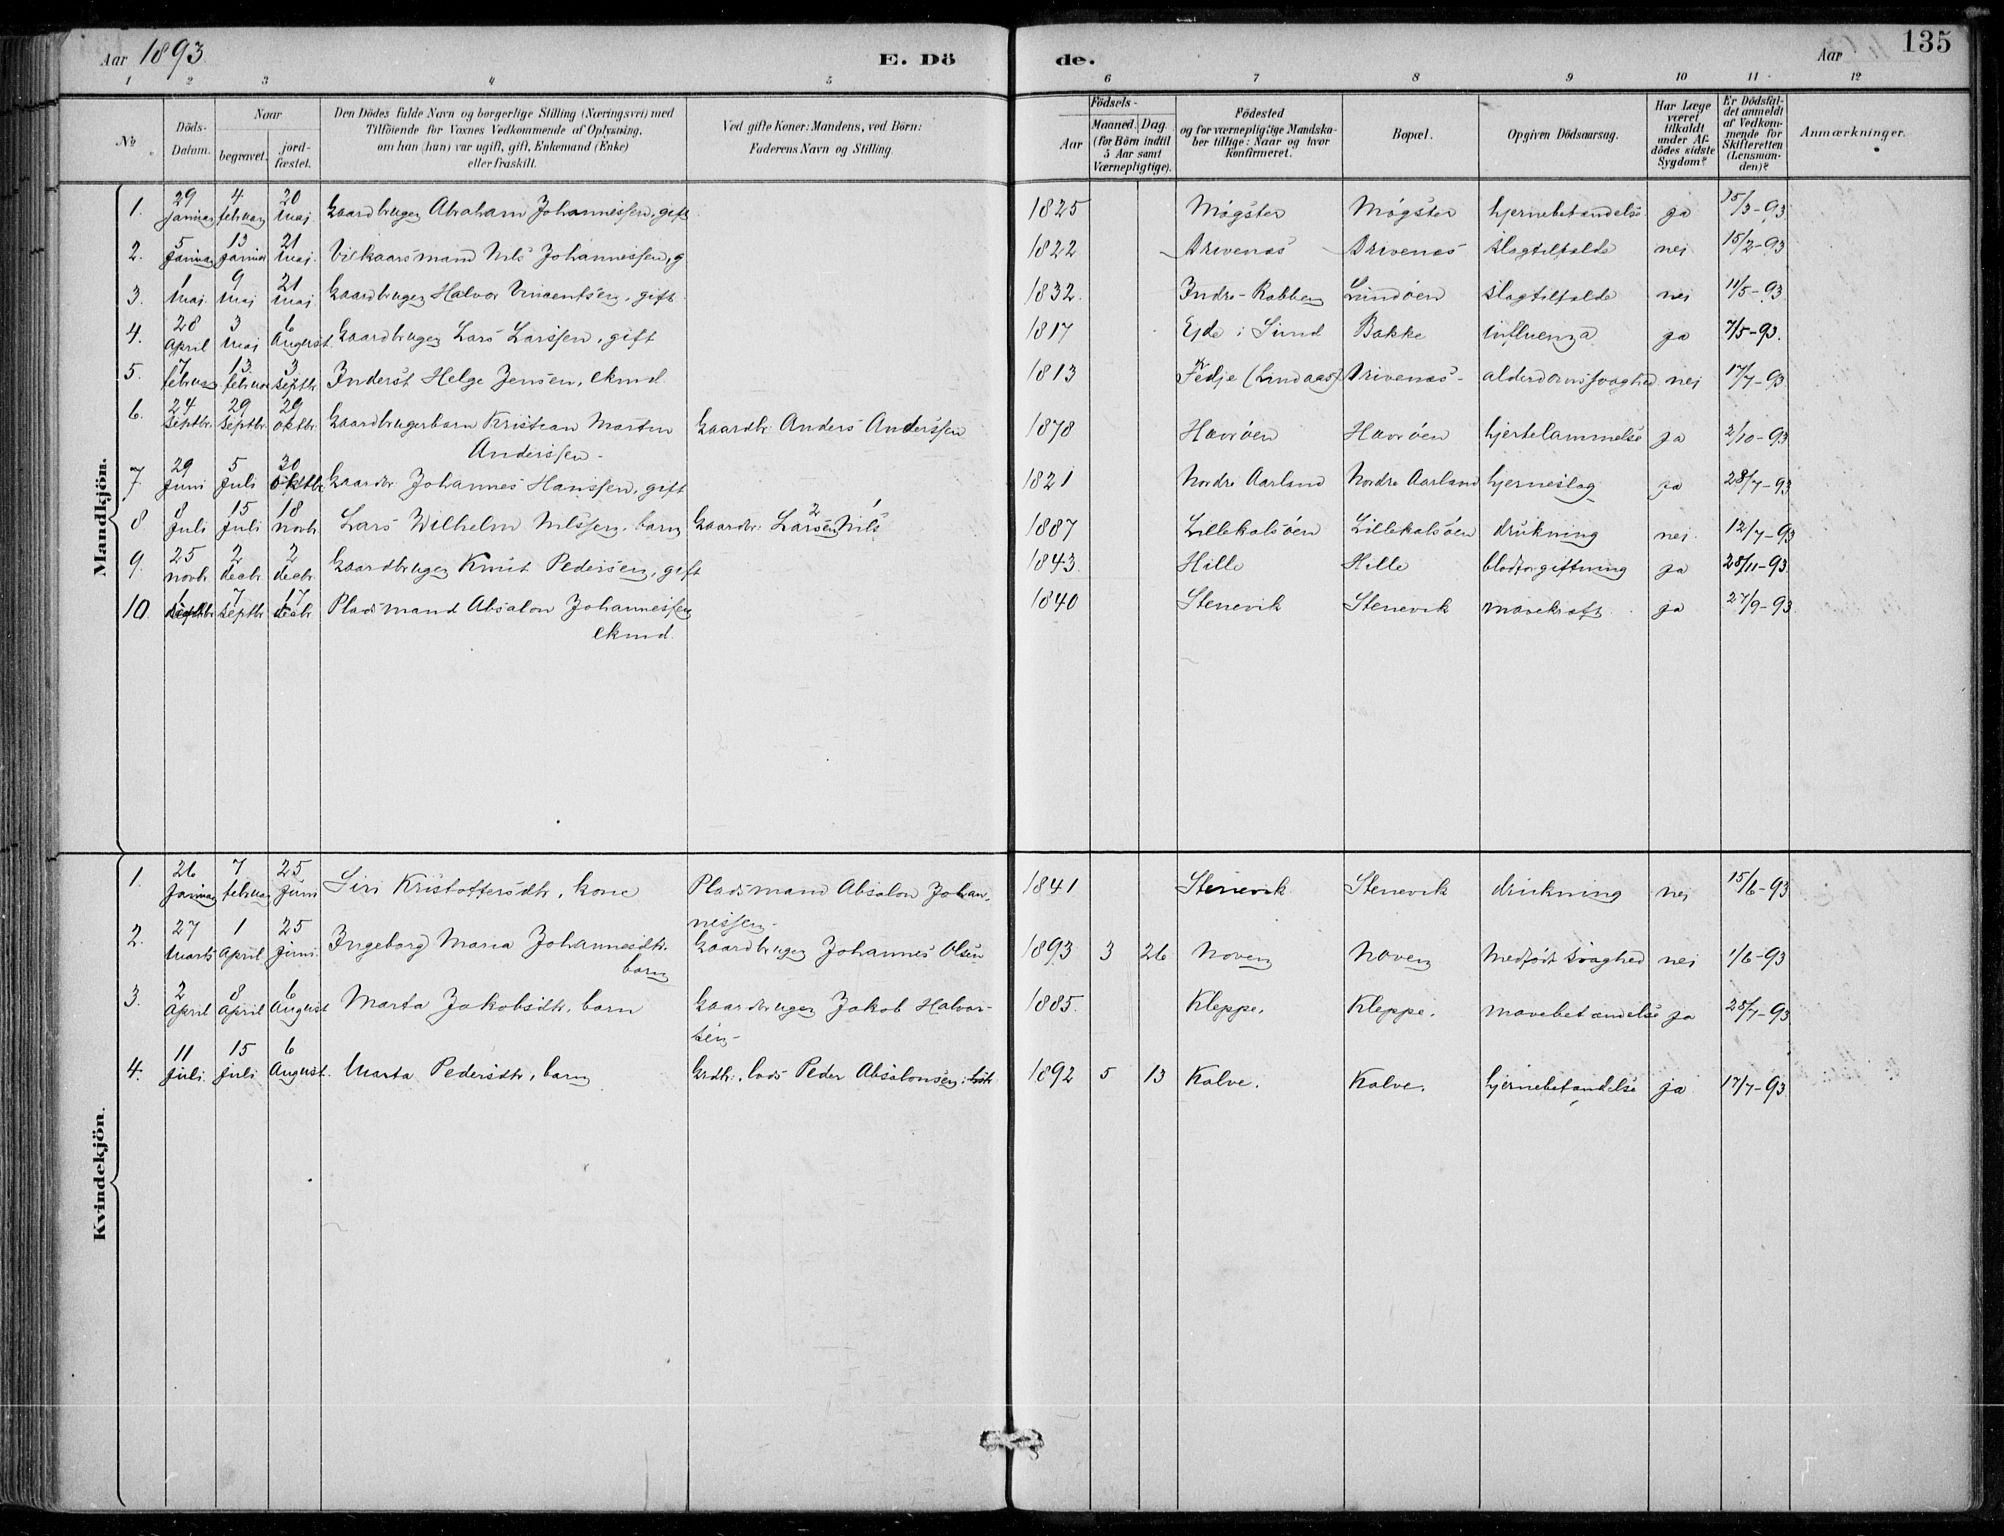 Aar 1893 E. Dö de. Aar 135
1 2 3 4 5 6 7 8 9 10 11 12
No. Döds-Datum. Naar begravet. jordfæstet. Den Dödes fulde Navn og borgerlige Stilling (Næringsvei) med Tilföiende for Voxnes Vedkommende af Oplysning, om han (hun) var ugift, gift, Enkemand (Enke) eller fraskilt. Ved gifte Koner: Mandens, ved Börn: Faderens Navn og Stilling. Födsels- Aar Maaned. Dag. (for Börn indtil 5 Aar samt Værnepligtige). Födested og for værnepligtige Mandskaber tillige: Naar og hvor konfirmeret. Bopæl. Opgiven Dödsaarsag. Har Læge været tilkaldt under Afdödes sidste Sygdom? Er Dödsfaldet anmeldt af Vedkommende for Skifteretten (Lensmanden)? Anmærkninger.
Mandkjön.
1. 29 Januar 4 februar 20 Maj Gaardbruger Abraham Johannessen, gift 1825 Møgster Møgster hjernebetændelse ja 15/3-93
2. 5 Januar 13 Januar 21 Maj. Vilkaarsmand Nils Johannessen, g 1822 Drivenæs Drivenæs slagtilfælde nei 15/2-93
3. 1 Maj. 9 Maj 21 Maj Gaardbruger Halvor Vincentsen, gift 1832. Indre-Rabben Lundøen slagtilfælde nei 11/5-93
4. 28 April 3 Maj 6 August. Gaardbruger Lars Larssen, gift 1817 Ejde i Sund Bakke influenza ja 7/5-93.
5. 7 februar 13. februar 3 septbr. Inderst Helge Jensen, ekmd. 1813 Fedje (Lindaas) Drivenæs alderdomssvaghed nei 17/7-93
6. 24 Septbr. 29 Septbr. 29 oktbr. Gaardbrugerbarn Kristian Marten Gaardbr. Anders Anderssen 1878 Havrøen Havrøen hjertelammelse ja 2/10-93
Anderssen
7 29 Juni 5 Juli 30 oktbr. Gaardbr Johannes Hanssen, gift 1821 Nordre Aarland Nordre Aarland hjerneslag ja 28/7-93
8 8 Juli 15 Juli 18 novbr. Lars Wilhelm Nilssen, barn Gaardbr. 2 Larsen 1 Nils 1887 Lillekalsøen Lillekalsøen drukning nei. 12/7-93
9. 25 novbr. 2 decbr. 2 decbr. Gaardbruger Knut Pedersen, gift 1843. Hille Hille blodforgiftning ja 28/11-93
10. 1 septbr. 7 septbr. 17 decbr. Pladsmand Absalon Johannessen 1840 Stenevik Stenevik mavekræft ja 27/9-93
ekmd.
Kvindekjön.
1. 26 Januar 7 februar 25 Juni Siri Kristoffersdtr, kone Pladsmand Absalon Johan- 1841 Stenevik Stenevik drukning nei 15/6-93
nessen
2. 27 Marts 1 April 25 Juni. Ingeborg Maria Johannesdtr. Gaardbruger Johannes Olsen 1893 3 26 Noven Noven Medfødt svaghed nei 1/6-93
barn
3. 2 April 8 April 6 August Marta Jakobsdtr, barn Gaardbruger Jakob Halvor- 1885. Kleppe. Kleppe. mavebetændelse ja 28/7-93
sen
4. 11 Juli 15 Juli 6 August. Marta Pedersdtr, barn Grdbr., lods Peder Absalonsen 1892 5 13 Kalve. Kalve. hjernebetændelse ja 17/7-93